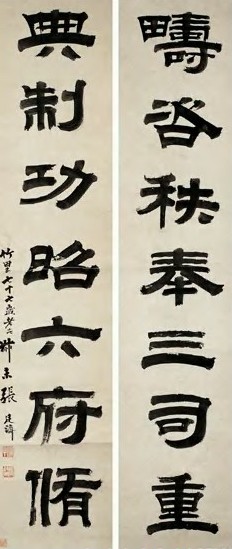 疇咨秩奉三司重
典制功昭六府脩
竹里七十七歲老人叔未張廷濟